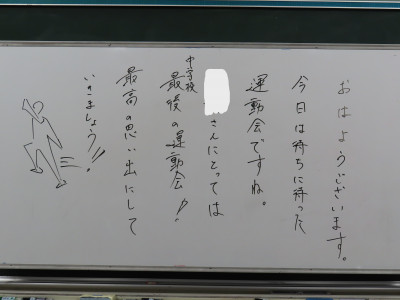 おはようございます。
今日は待ちに待った
運動会ですね。
さんにとっては
中学校最後の運動会！
最高の思い出にして
いきましょう!!